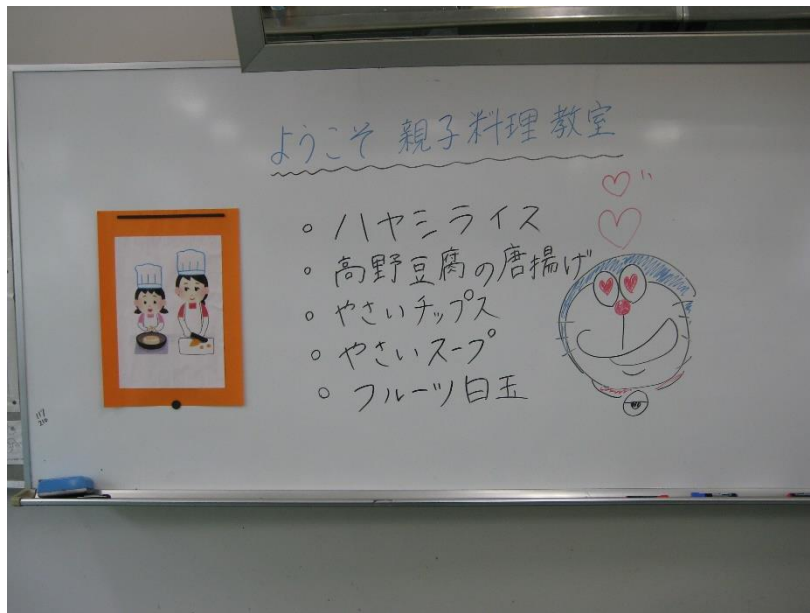 ようこそ 親子料理教室
・ハヤシライス
・高野豆腐の唐揚げ
・やさいチップス
・やさいスープ
・フルーツ白玉